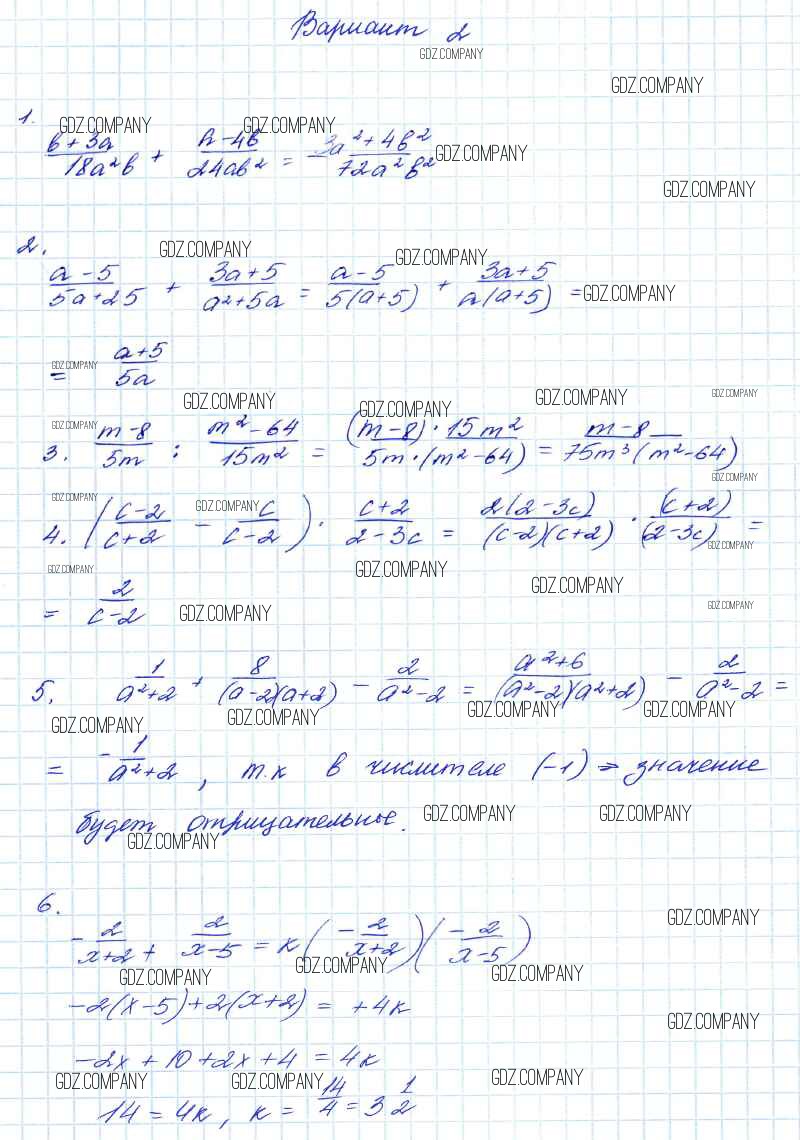 Вариант 2
GDZ.COMPANY
GDZ.COMPANY
1.
GDZ.COMPANY GDZ.COMPANY
(в+3а)/(18а²в) + (а-4в)/(24ав²) = (3а²+4в²)/(72а²в²) GDZ.COMPANY
GDZ.COMPANY
2.
GDZ.COMPANY GDZ.COMPANY
(а-5)/(5а+25) + (3а+5)/(а²+5а) = (а-5)/(5(а+5)) + (3а+5)/(а(а+5)) = GDZ.COMPANY
GDZ.COMPANY
= (а+5)/(5а)
GDZ.COMPANY GDZ.COMPANY GDZ.COMPANY GDZ.COMPANY
GDZ.COMPANY
3. (m-8)/(5m) : (m²-64)/(15m²) = ((m-8)·15m²)/(5m·(m²-64)) = (m-8)/(75m³(m²-64))
GDZ.COMPANY
GDZ.COMPANY GDZ.COMPANY
4. ((c-2)/(c+2) - c/(c-2)) · (c+2)/(2-3c) = (2(2-3c))/((c-2)(c+2)) · (c+2)/(2-3c) =
GDZ.COMPANY
GDZ.COMPANY GDZ.COMPANY GDZ.COMPANY
= 2/(c-2) GDZ.COMPANY GDZ.COMPANY
5. 1/(а²+2) + 8/((а-2)(а+2)) - 2/(а²-2) = (а²+6)/((а²-2)(а²+2)) - 2/(а²-2) =
GDZ.COMPANY GDZ.COMPANY GDZ.COMPANY GDZ.COMPANY
= -1/(а²+2), т.к в числителе (-1) ⇒ значение
будет отрицательные. GDZ.COMPANY GDZ.COMPANY
GDZ.COMPANY
6.
GDZ.COMPANY
-2/(x+2) + 2/(x-5) = к(-2/(x+2))(-2/(x-5))
GDZ.COMPANY GDZ.COMPANY GDZ.COMPANY
-2(x-5)+2(x+2) = +4к
GDZ.COMPANY
-2x+10+2x+4 = 4к
GDZ.COMPANY GDZ.COMPANY GDZ.COMPANY
14 = 4к, к = 14/4 = 3 1/2